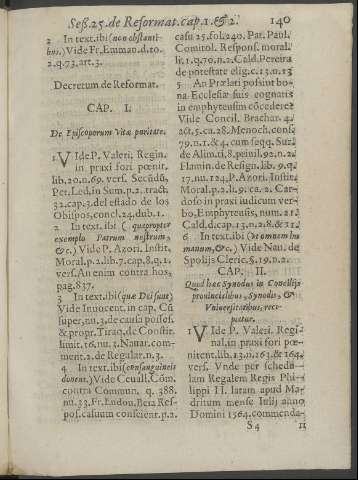 Seß.25.de Reformat.cap.1.& 2. 140
2 In text.ibi (non obstanti-
bus.) Vide Fr. Emman. d. to.
2.q.73.art.3.
Decretum de Reformat.
CAP. I.
De Episcoporum Vita puritate.
1 VIde P. Valeri. Regin.
in praxi fori pœnit.
lib.20.n.69. vers. Secũdũ,
Per. Led, in Sum.p.2. tract.
32.cap.3.del estado de los
Obispos, concl.24.dub.1.
2 In text. ibi (quapropter
exemplo Patrum nostrum,
&c.) Vide P. Azori. Instit.
Moral.p.2.lib.7.cap.8.q.1.
vers. An enim contra hos,
pag.837.
3 In text.ibi (quæ Dei sunt)
Vide Innocent. in cap. Cũ
super, nu.3.de causis posses.
& propr. Tiraq. de Constit.
limit.16.nu.3. Nauar. com-
ment.2.de Regular.n.3.
4 In text. ibi (consanguineis
donent.) Vide Couall. Cõm.
contra Commun. q. 388.
nu.33.Fr. Endou. Beia Res-
pos.casuum conscient. p.2.
casu 25.fol.240. Pat. Paul.
Comitol. Respons. moral.
li.1.q.70.n.2. Cald. Pereira
de potestate elig. c.13.n.13
5 An Prælari possint bo-
na Ecclesiæ suis cognatis
in emphyteusim cõcedere?
Vide Concil. Brachar. 4.
act.5.ca.28. Menoch. cons.
79.n.1.&4. cum seqq. Surd.
de Alim.ti.8. peiuil. 92.n.2.
Flamin. de Resign. lib. 9.q.
17.nu.124.P. Azori. Instit.
Moral. p.2.li.9. ca. 2. Car-
doso in praxi iudicum ver-
bo, Emphyteusis, num.21.
Cald.d.cap.13.n.2.8. & 21.
6 In text. ibi (Vt omnem hu
manum, &c.) Vide Nau. de
Spolijs Cleric.§.19.n.2.
CAP. II.
Quid hæc Synodus in Concilijs
prouincialibus, Synodis, &
Vniuersitatibus, reci-
piatur.
1 VIde P. Valeri. Regi-
nal. in praxi fori pœ-
nitent. lib.13.n.163.& 164.
vers. Vnde per schedu-
lam Regalem Regis Phi-
lippi II. latam apud Ma-
dritum mense Iulij anno
Domini 1564. commenda-
S 4 11